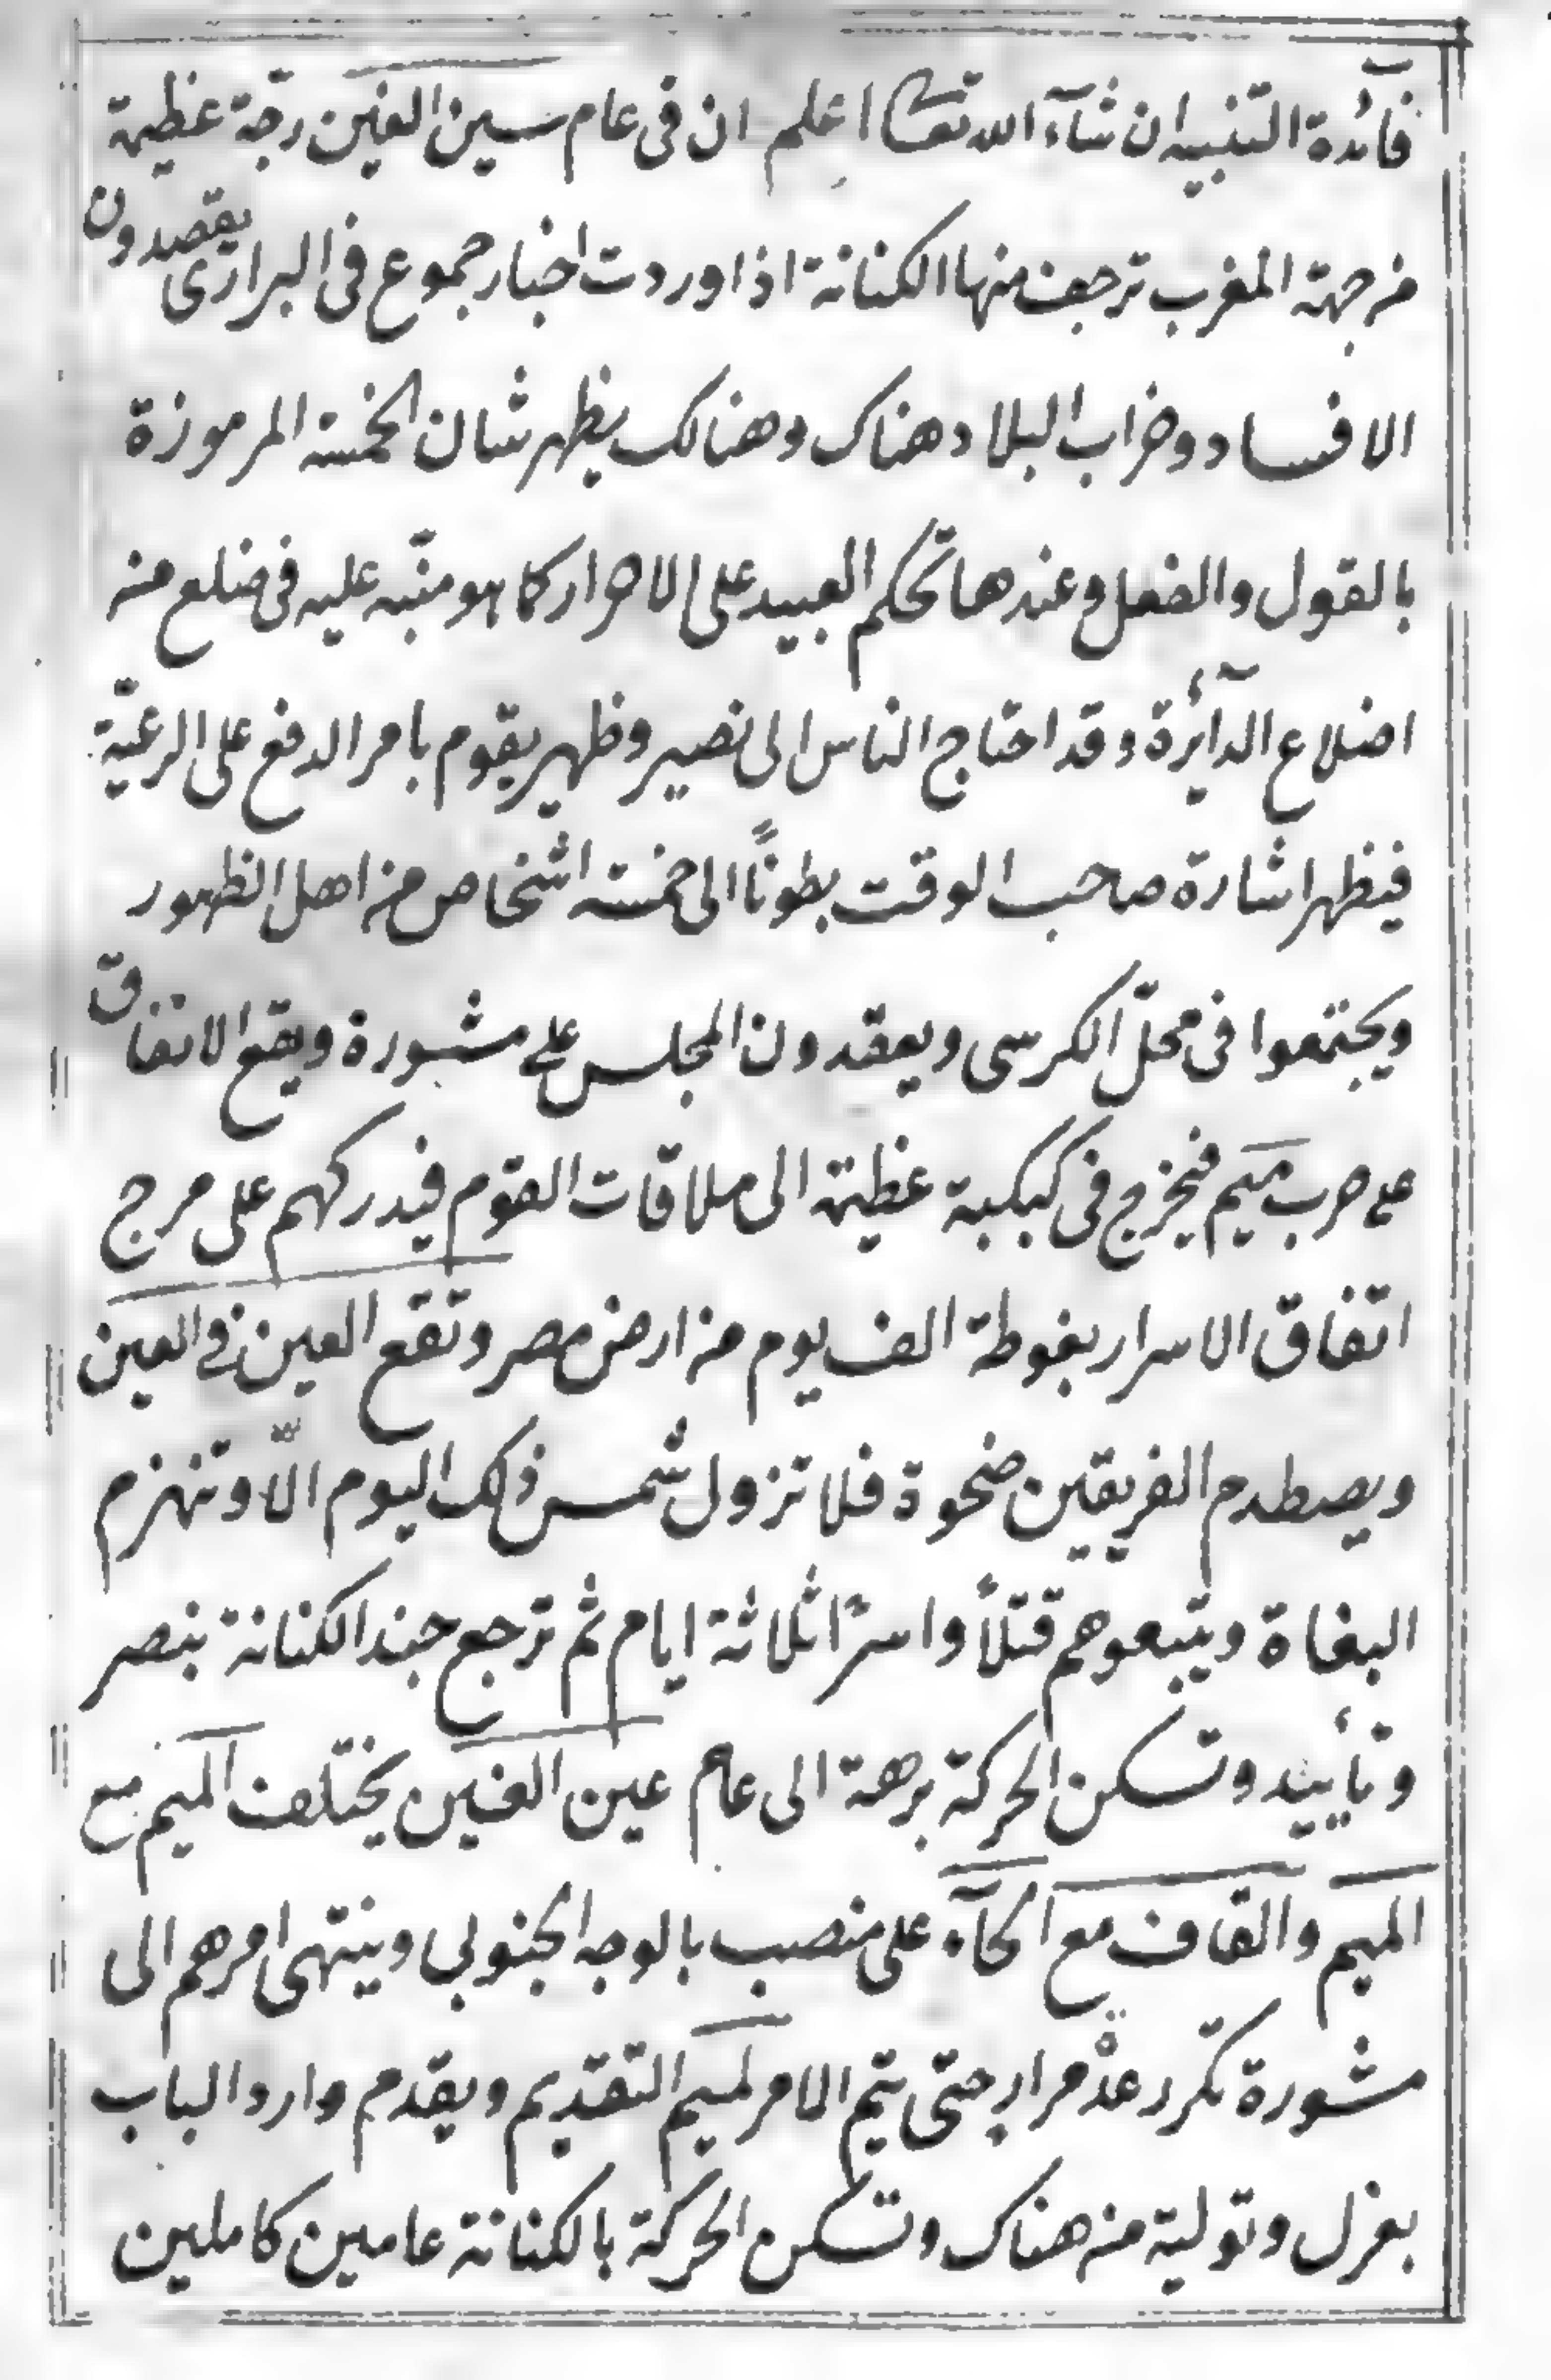 فآئدة التنبيه ان شآء الله تعالى اعلم ان فى عام سين الغين رجّة عظيمة
من جهة المغرب ترجف منها الكنانة اذا وردت اخبار جموع فى البرارى يقصدون
الافساد وخراب البلاد هناك وهنالك يظهر شان الخمسة المرموزة
بالقول والفعل وعندها تحكم العبيد على الاحرار كما هو منبّه عليه فى ضلع من
اضلاع الدآئرة وقد احتاج الناس الى نصير وظهير يقوم بامر الدفع على الرعيّة
فيظهر اشارة صاحب الوقت بطونًا الى خمسة اشخاص من اهل الظهور
ويجتمعوا فى محلّ الكرسى ويعقدون المجلس على مشورة ويقع الاتفاق
على حرب ميم فيخرج فى كبكبة عظيمة الى ملاقات القوم فيدركهم على مرج
اتفاق الاسرار بغوطة الف يوم من ارض مصر وتقع العين فى العين
ويصطدم الفريقين ضحوة فلا تزول شمس ذلك اليوم الّا وتنهزم
البغاة ويتبعوهم قتلاً واسرًا ثلاثة ايام ثم ترجع جند الكنانة بنصر
وتأييد وتسكن الحركة برهة الى عام عين الغين يختلف الميم مع
الميم والقاف مع الحآء على منصب بالوجه الجنوبى وينتهى امرهم الى
مشورة تكرر عدّة مرار حتّى يتم الامر لميم التقديم ويقدم وارد الباب
بعزل وتولية من هناك وتسكن الحركة بالكنانة عامين كاملين